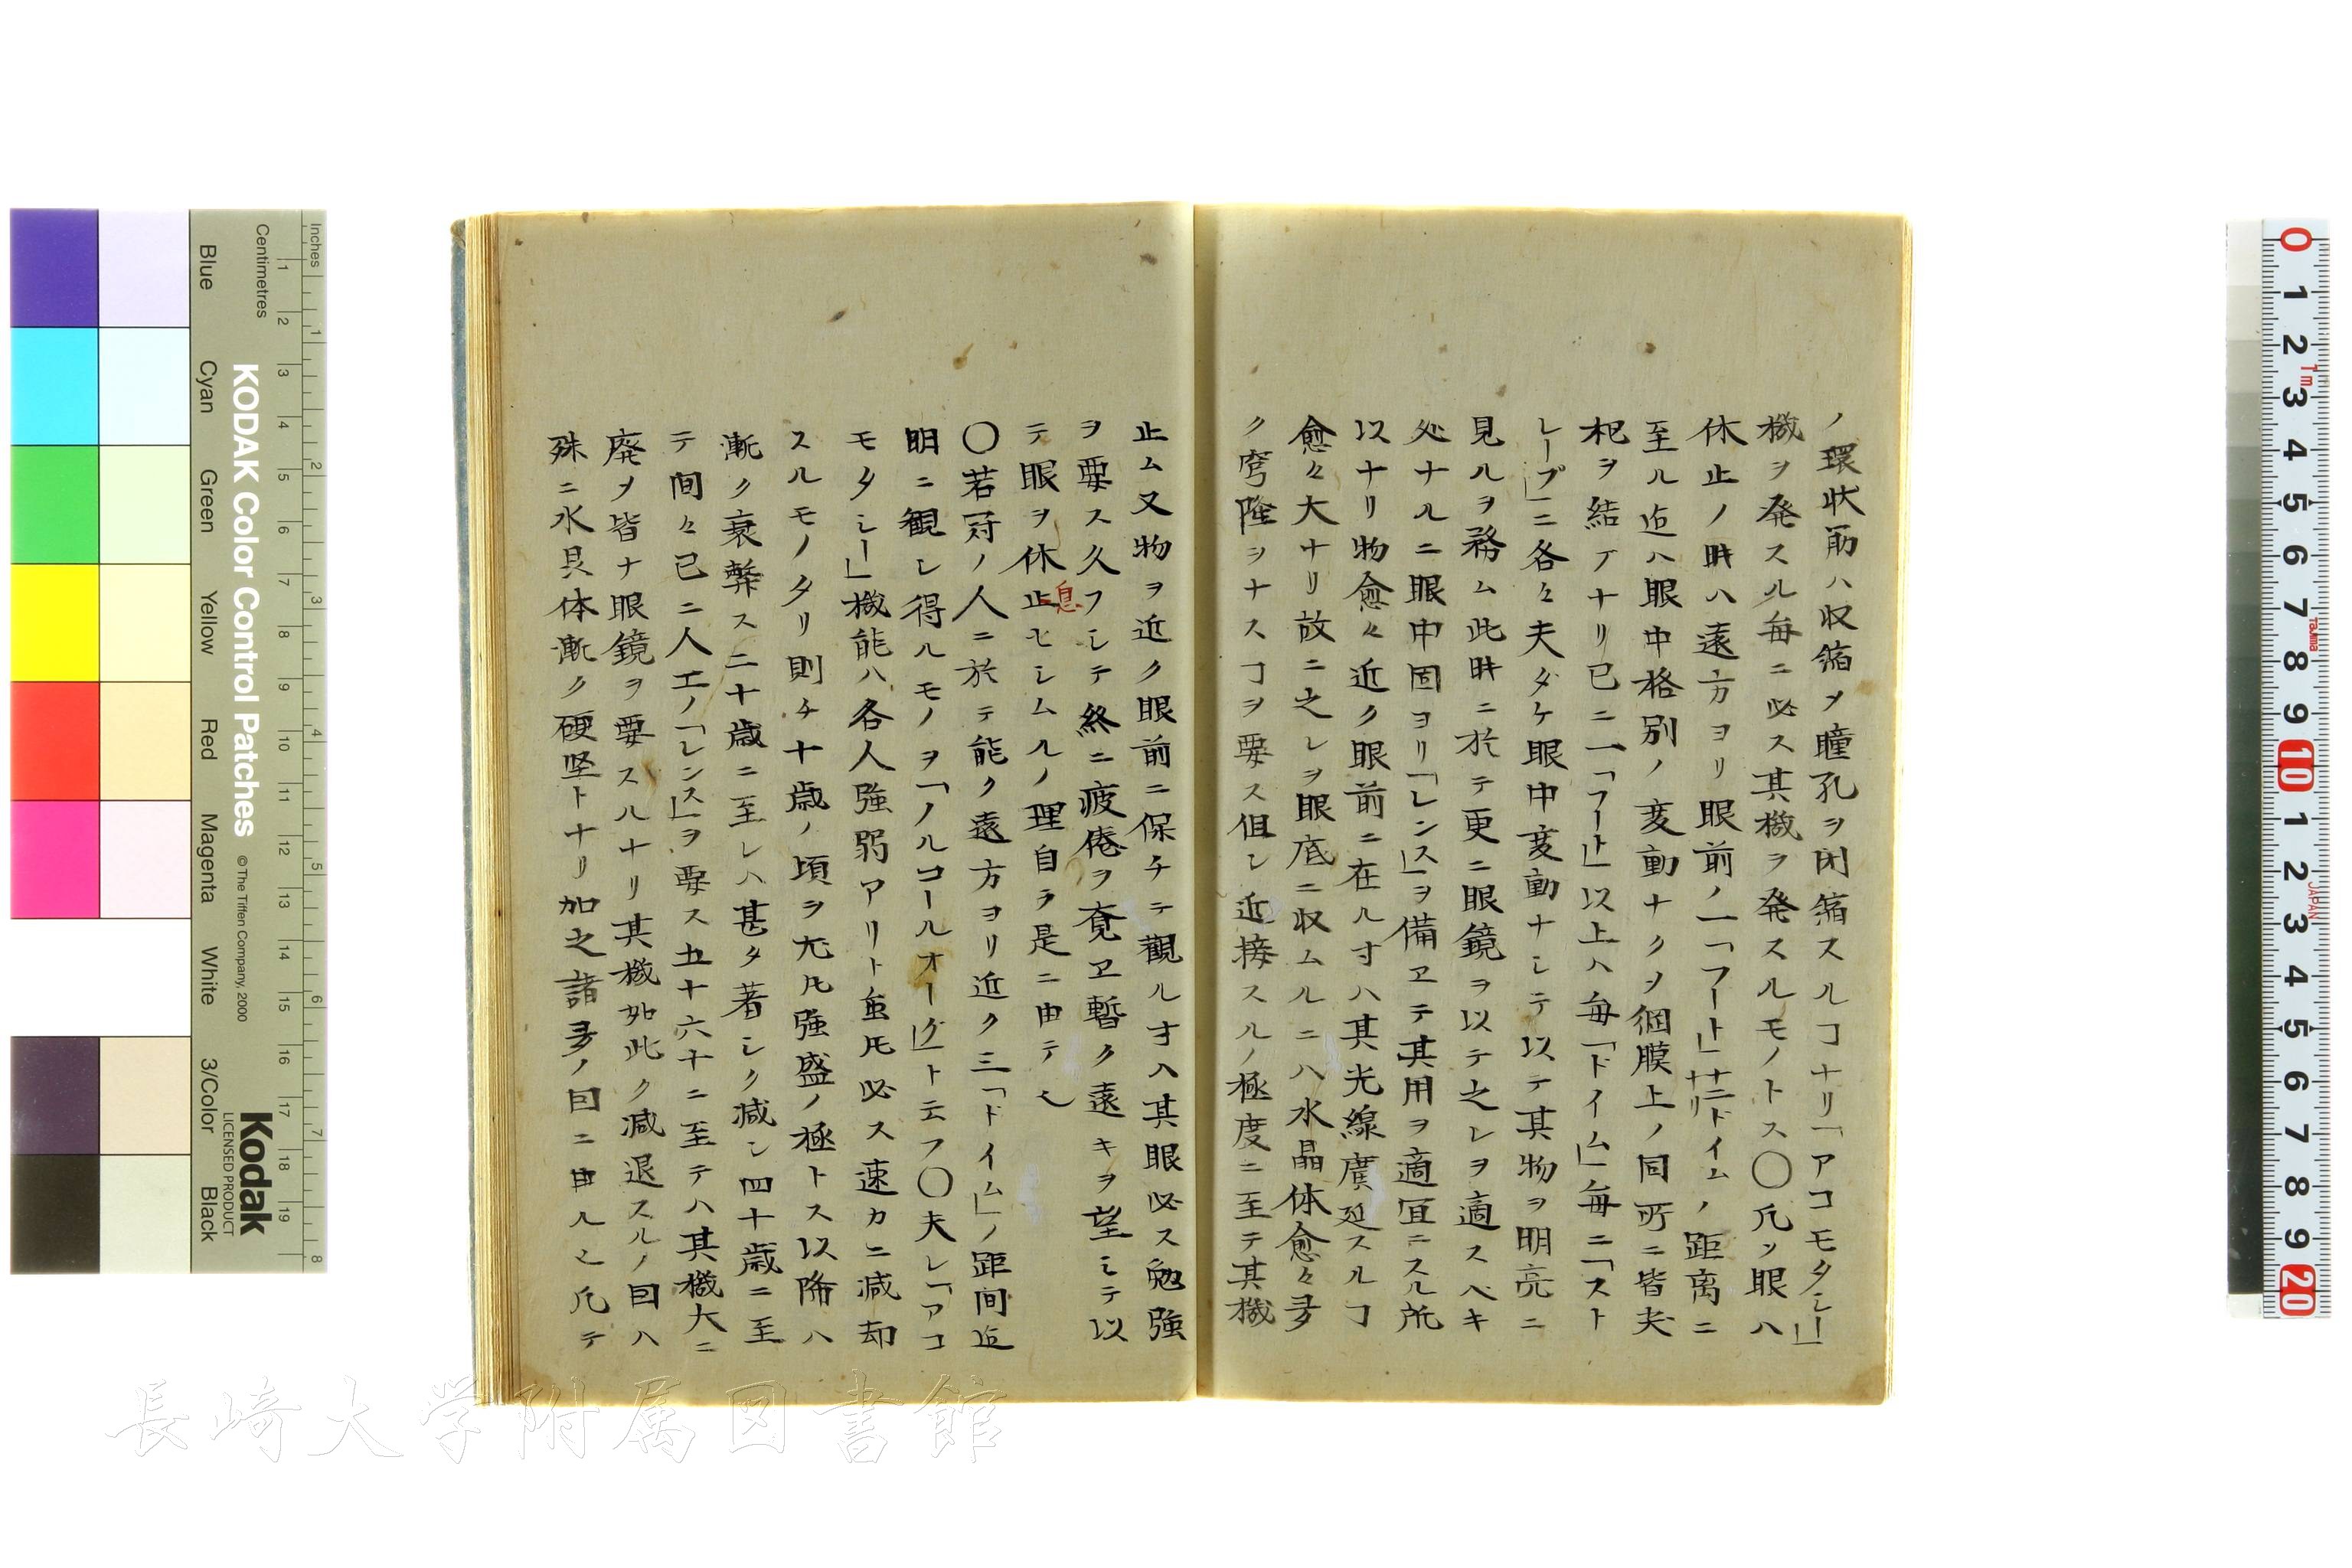 ノ環状筋ハ収縮メ瞳孔ヲ閉縮スルヿナリ「アコモタシー」
機ヲ発スル毎ニ必ス其機ヲ発スルモノトス〇凡ソ眼ハ
休止ノ時ハ遠方ヨリ眼前ノ一「フート」十二ドイムナリノ距离ニ
至ル迠ハ眼中格別ノ変動ナクソ個膜上ノ同所ニ皆夫
杷ヲ結ブナリ已ニ一「フート」以上ハ毎「ドイム」毎ニ「スト
レープ」ニ各々夫ダケ眼中変動ナシテ以テ其物ヲ明亮ニ
見ルヲ務ム此時ニ於テ更ニ眼鏡ヲ以テ之レヲ適スヘキ
処ナルニ眼中固ヨリ「レンス」ヲ備ヱテ其用ヲ適宜ニスル所
以ナリ物愈々近ク眼前ニ在ル寸ハ其光線廣延スルヿ
愈々大ナリ故ニ之レヲ眼底ニ収ムルニハ水晶体愈々多
ク穹隆ヲナスヿヲ要ス但シ近接スルノ極度ニ至テ其機
止ム又物ヲ近ク眼前ニ保チテ觀ル寸ハ其眼必ス勉強
ヲ要ス久フシテ終ニ疲倦ヲ覚ヱ暫ク遠キヲ望シテ以
テ眼ヲ休止セシムルノ理自ラ是ニ由テ也
息
〇若冠ノ人ニ於テ能ク遠方ヨリ近ク三「ドイム」ノ距间迠
明ニ観シ得ルモノヲ「ノルコールオーグ」ト云フ〇夫レ「アコ
モタシー」機能ハ各人強弱アリト虽𪜈必ス速カニ減却
スルモノタリ則チ十歳ノ頃ヲ尤𪜈強盛ノ極トス以降ハ
漸ク衰弊ス二十歳ニ至レハ甚タ著シク減シ四十歳ニ至
テ间々已ニ人工ノ「レンス」ヲ要ス五十六十ニ至テハ其機大ニ
廃ソ皆ナ眼鏡ヲ要スルナリ其機如此ク減退スルノ因ハ
殊ニ水晶体漸ク硬坚トナリ加之諸多ノ因ニ由ル也凡テ
長崎大学附属図書館
Inches
Centimetres
KODAK Color Control Patches
© The Tiffen Company, 2000
Kodak
LICENSED PRODUCT
Blue
Cyan
Green
Yellow
Red
Magenta
White
3/Color
Black
1 2 3 4 5 6 7 8
1 2 3 4 5 6 7 8 9 10 11 12 13 14 15 16 17 18 19
0 1 2 3 4 5 6 7 8 9 10 1 2 3 4 5 6 7 8 9 20
1m
Tajima
JAPAN